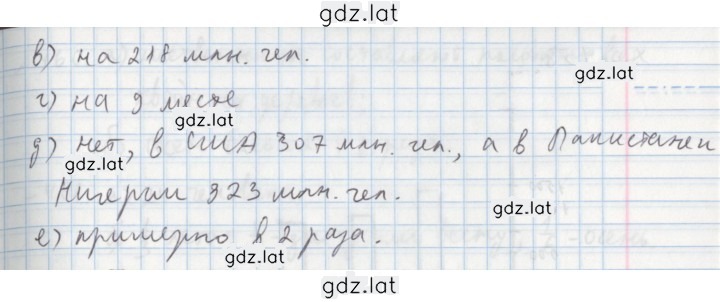 gdz.lat
в) на 218 млн. чел.
gdz.lat
г) на 9 месте
gdz.lat
д) нет, в США 307 млн. чел., а в Пакистане и
gdz.lat
Нигерии 323 млн. чел.
gdz.lat
е) примерно в 2 раза.
gdz.lat
gdz.lat